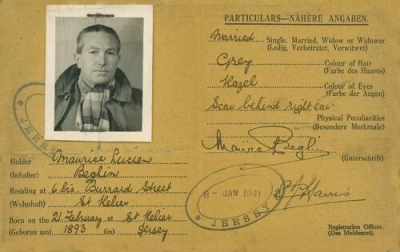 JERSEY
Holder Maurice Lucien
(Inhaber) Beghin
Residing at 6 bis. Burrard Street
(Wohnhaft) St Helier
Born on the 21 February at St Helier
(Geboren am) 1893 in Jersey
PARTICULARS—NÄHERE ANGABEN.
Married Single, Married, Widow or Widower
(Ledig, Verheiratet, Verwitwet)
Grey Colour of Hair
(Farbe des Haares)
Hazel Colour of Eyes
(Farbe der Augen)
Scar behind right ear
Physical Peculiarities
(Besondere Merkmale)
Maurice L Beghin
(Unterschrift)
8 - JAN 1941
JERSEY
Registration Officer.
(Das Meldeamt).